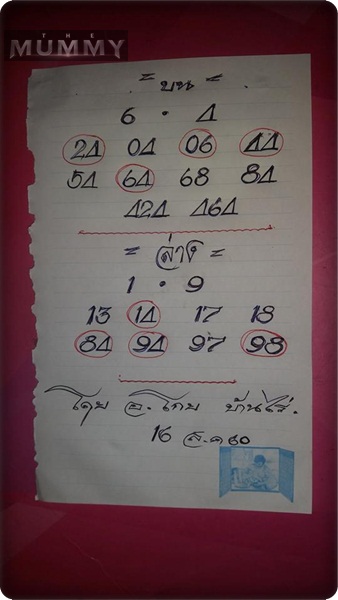 THE
MUMMY
= บน =
6 • 4
24 04 06 44
54 64 68 84
424 464
= ล่าง =
1 • 9
13 14 17 18
84 94 97 98
โดย อ. โกย บ้านไร่.
16 ส.ค 60